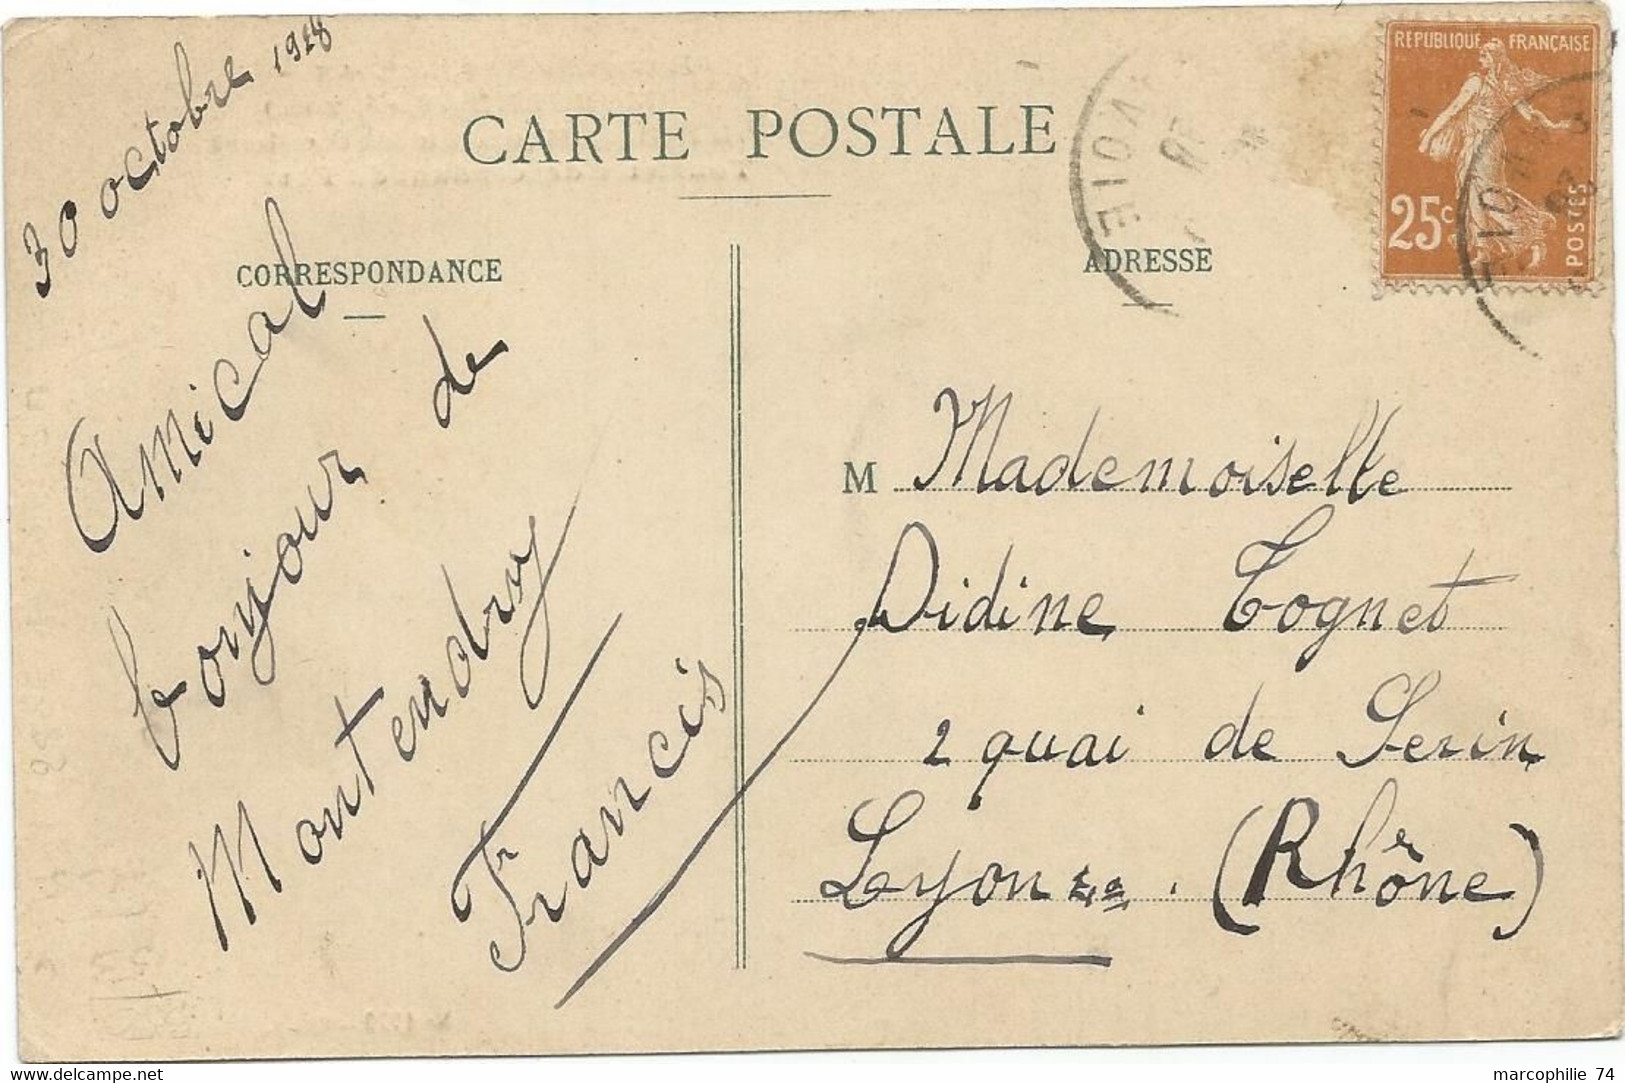 30 octobre 1928
CARTE POSTALE
REPUBLIQUE FRANÇAISE
25c
POSTES
CORRESPONDANCE
ADRESSE
Amical
bonjour de
Montendry
Francis
M Mademoiselle
Didine Tognet
2 quai de Serin
Lyon 4e. (Rhône)
marcophilie 74